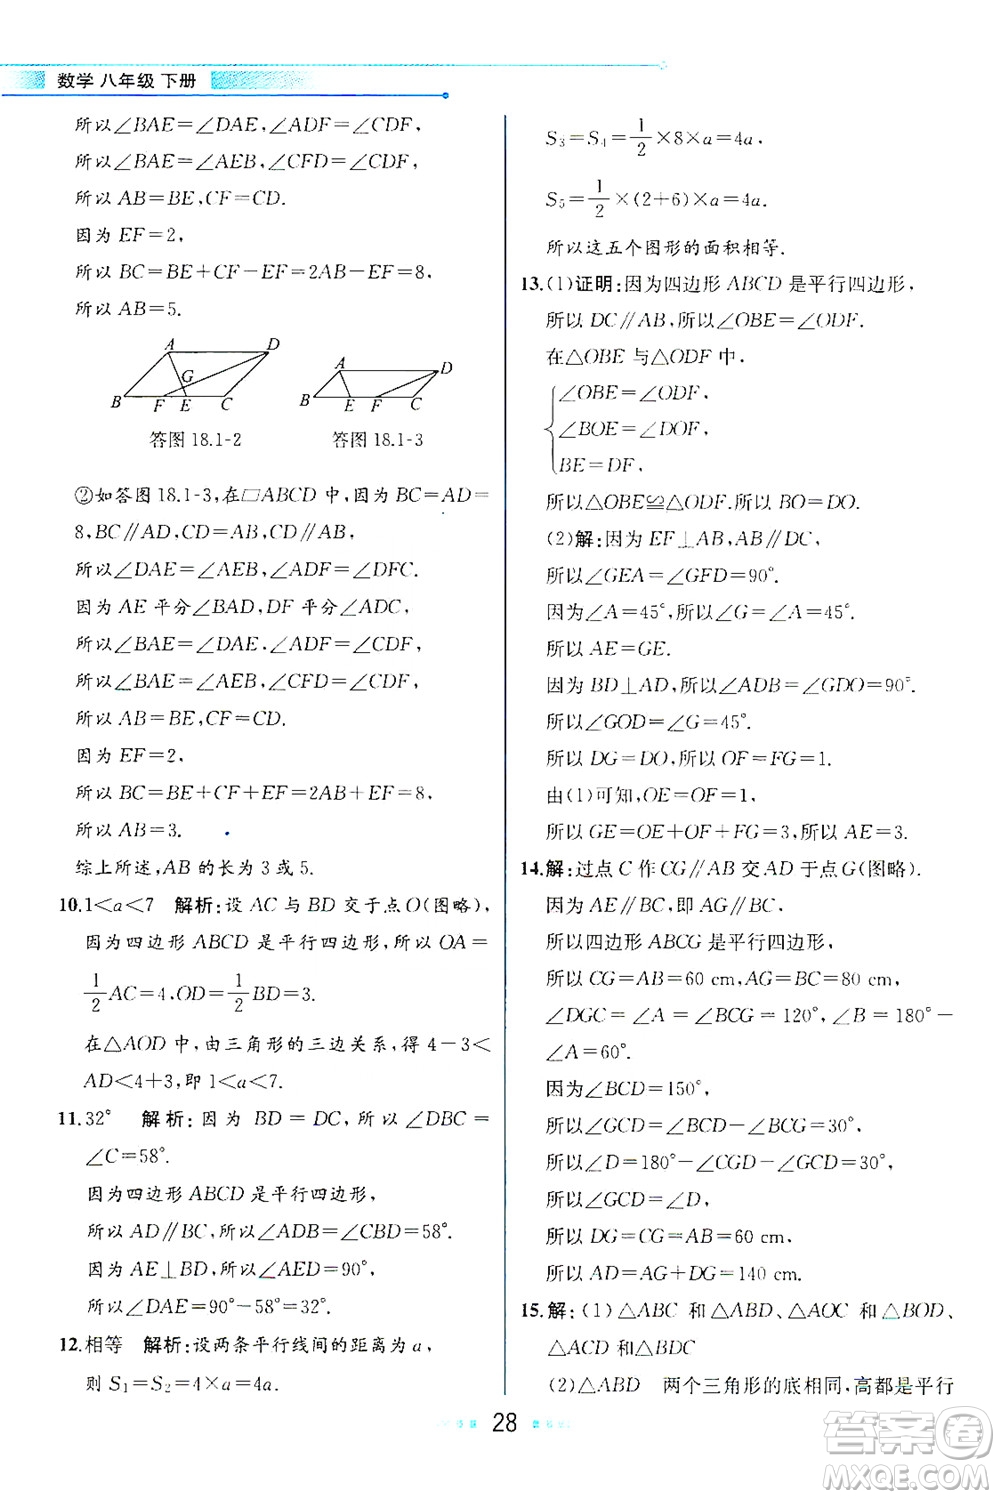 数学 八年级 下册
所以∠BAE=∠DAE,∠ADF=∠CDF,
所以∠BAE=∠AEB,∠CFD=∠CDF,
所以 AB=BE,CF=CD.
因为 EF=2,
所以 BC=BE+CF-EF=2AB-EF=8,
所以 AB=5.
A D G B F E C
答图 18.1-2
A D B E F C
答图 18.1-3
②如答图 18.1-3,在▱ABCD 中,因为 BC=AD=
8,BC∥AD,CD=AB,CD∥AB,
所以∠DAE=∠AEB,∠ADF=∠DFC.
因为 AE 平分∠BAD,DF 平分∠ADC,
所以∠BAE=∠DAE,∠ADF=∠CDF,
所以∠BAE=∠AEB,∠CFD=∠CDF,
所以 AB=BE,CF=CD.
因为 EF=2,
所以 BC=BE+CF+EF=2AB+EF=8,
所以 AB=3.
综上所述,AB 的长为 3 或 5.
10.1<a<7 解析:设 AC 与 BD 交于点 O(图略),
因为四边形 ABCD 是平行四边形,所以 OA=
1/2 AC=4,OD=1/2 BD=3.
在△AOD 中,由三角形的三边关系,得 4-3<
AD<4+3,即 1<a<7.
11.32° 解析:因为 BD=DC,所以∠DBC=
∠C=58°.
因为四边形 ABCD 是平行四边形,
所以 AD∥BC,所以∠ADB=∠CBD=58°.
因为 AE⊥BD,所以∠AED=90°,
所以∠DAE=90°-58°=32°.
12.相等 解析:设两条平行线间的距离为 a,
则 S₁=S₂=4×a=4a.
S₃=S₄=1/2×8×a=4a,
S₅=1/2×(2+6)×a=4a.
所以这五个图形的面积相等.
13.(1)证明:因为四边形 ABCD 是平行四边形,
所以 DC∥AB,所以∠OBE=∠ODF.
在△OBE 与△ODF 中,
∠OBE=∠ODF,
∠BOE=∠DOF,
BE=DF,
所以△OBE≌△ODF.所以 BO=DO.
(2)解:因为 EF⊥AB,AB∥DC,
所以∠GEA=∠GFD=90°.
因为∠A=45°,所以∠G=∠A=45°.
所以 AE=GE.
因为 BD⊥AD,所以∠ADB=∠GDO=90°.
所以∠GOD=∠G=45°.
所以 DG=DO,所以 OF=FG=1.
由(1)可知,OE=OF=1,
所以 GE=OE+OF+FG=3,所以 AE=3.
14.解:过点 C 作 CG∥AB 交 AD 于点 G(图略).
因为 AE∥BC,即 AG∥BC,
所以四边形 ABCG 是平行四边形,
所以 CG=AB=60 cm,AG=BC=80 cm,
∠DGC=∠A=∠BCG=120°,∠B=180°-
∠A=60°.
因为∠BCD=150°,
所以∠GCD=∠BCD-∠BCG=30°,
所以∠D=180°-∠CGD-∠GCD=30°,
所以∠GCD=∠D,
所以 DG=CG=AB=60 cm,
所以 AD=AG+DG=140 cm.
15.解:(1)△ABC 和△ABD、△AOC 和△BOD、
△ACD 和△BDC
(2)△ABD 两个三角形的底相同,高都是平行
28
答案圈
MXQE.COM